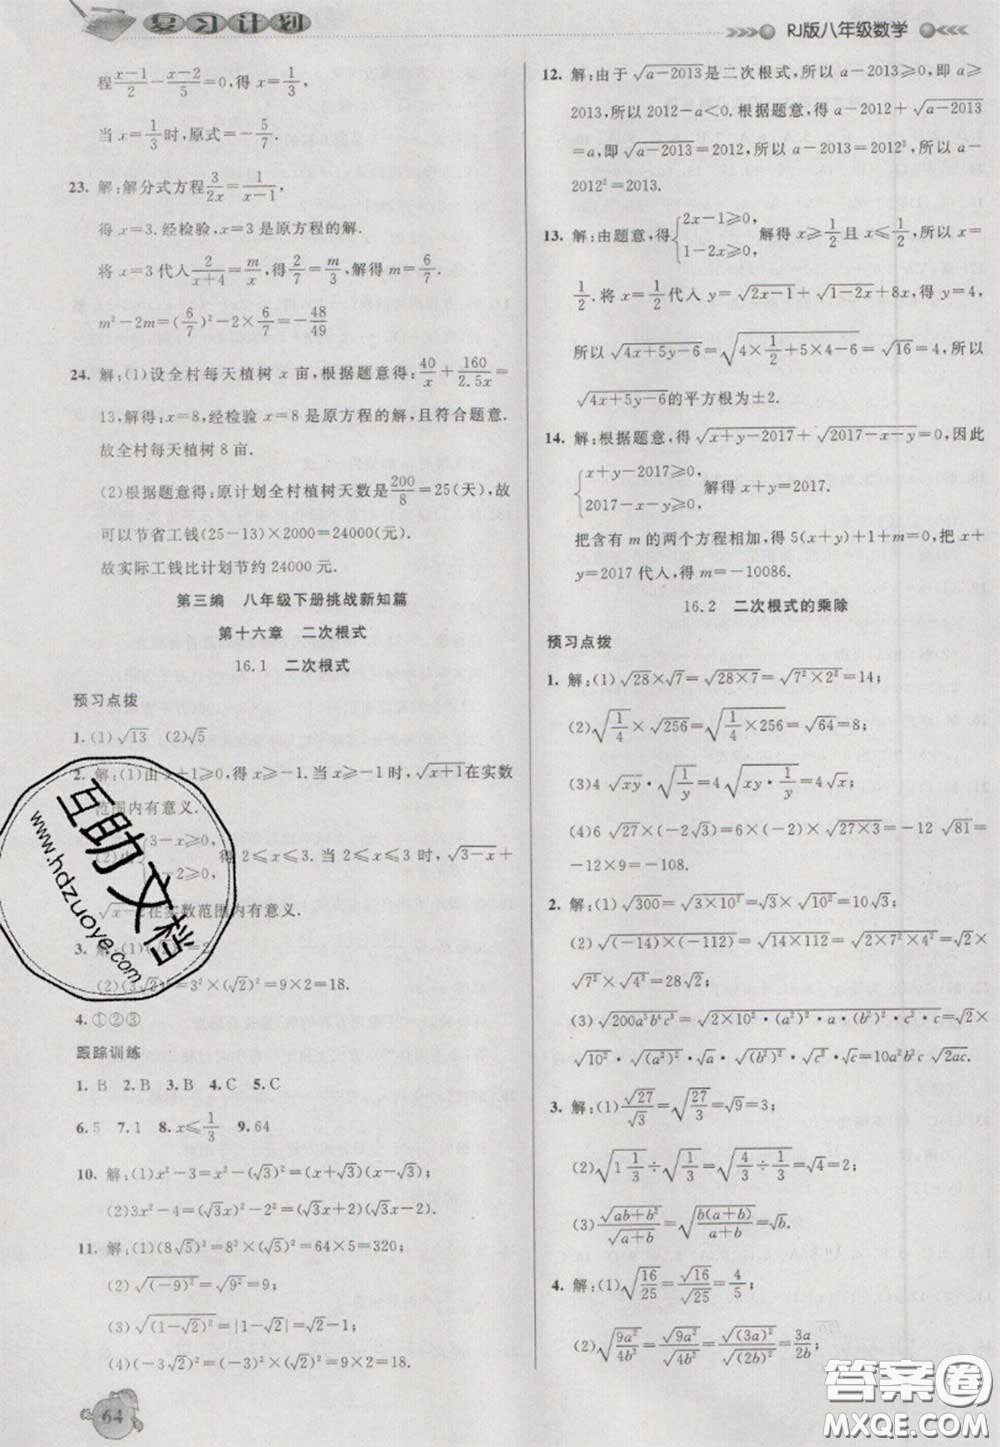 复习计划
RJ版八年级数学
程(x-1)/2-(x-2)/5=0,得x=1/3,
当x=1/3时,原式=-5/7.
23. 解:解分式方程3/(2x)=1/(x-1),
得x=3.经检验,x=3是原方程的解.
将x=3代人2/(x+4)=m/x,得2/7=m/3,解得m=6/7.
m²-2m=(6/7)²-2×6/7=-48/49
24. 解:(1)设全村每天植树x亩,根据题意得:40/x+160/2.5x=
13,解得:x=8,经检验x=8是原方程的解,且符合题意.
故全村每天植树8亩.
(2)根据题意得:原计划全村植树天数是200/8=25(天),故
可以节省工钱(25-13)×2000=24000(元).
故实际工钱比计划节约24000元.
第三编 八年级下册挑战新知篇
第十六章 二次根式
16.1 二次根式
预习点拨
1.(1)√13 (2)√5
2. 解:(1)由x+1≥0,得x≥-1.当x≥-1时,√(x+1)在实数
范围内有意义.
3-x≥0,
≥0, 得2≤x≤3.当2≤x≤3时,√(3-x)+
在实数范围内有意义.
3. 解:(1)
(2)(3√2)²=3²×(√2)²=9×2=18.
4.①②③
跟踪训练
1. B 2. B 3. B 4. C 5. C
6. 5 7. 1 8. x≤1/3 9. 64
10. 解:(1)x²-3=x²-(√3)²=(x+√3)(x-√3);
(2)3x²-4=(√3x)²-2²=(√3x+2)(√3x-2).
11. 解:(1)(8√5)²=8²×(√5)²=64×5=320;
(2)√(-9)²=√9²=9;
(3)√(1-√2)²=|1-√2|=√2-1;
(4)(-3√2)²=(-3)²×(√2)²=9×2=18.
64
12. 解:由于√(a-2013)是二次根式,所以a-2013≥0,即a≥
2013,所以2012-a<0.根据题意,得a-2012+√(a-2013)
=a,即√(a-2013)=2012,所以a-2013=2012²,所以a-
2012²=2013.
13. 解:由题意,得{2x-1≥0, 1-2x≥0} 解得x≥1/2且x≤1/2,所以x=
1/2.将x=1/2代人y=√(2x-1)+√(1-2x)+8x,得y=4,
所以√(4x+5y-6)=√(4×1/2+5×4-6)=√16=4,所以
√(4x+5y-6)的平方根为±2.
14. 解:根据题意,得√(x+y-2017)+√(2017-x-y)=0,因此
{x+y-2017≥0, 2017-x-y≥0.} 解得x+y=2017.
把含有m的两个方程相加,得5(x+y)+1+m=0,把x+y
=2017代人,得m=-10086.
16.2 二次根式的乘除
预习点拨
1. 解:(1)√28×√7=√(28×7)=√(7²×2²)=14;
(2)√(1/4)×√256=√(1/4×256)=√64=8;
(3)4√xy·√(1/y)=4√(xy·1/y)=4√x;
(4)6√27×(-2√3)=6×(-2)×√(27×3)=-12√81=
-12×9=-108.
2. 解:(1)√300=√(3×10²)=√3×√10²=10√3;
(2)√((-14)×(-112))=√(14×112)=√(2×7²×4²)=√2×
√7²×√4²=28√2;
(3)√(200a⁵b⁴c³)=√(2×10²·(a²)²·a·(b²)²·c²·c)=√2×
√10²·√(a²)²·√a·√(b²)²·√c²·√c=10a²b²c√2ac.
3. 解:(1)√27/√3=√(27/3)=√9=3;
(2)√(1 1/3)÷√(1/3)=√(4/3÷1/3)=√4=2;
(3)√(ab+b²)/√(a+b)=√(b(a+b)/(a+b))=√b.
4. 解:(1)√(16/25)=√16/√25=4/5;
(2)√(9a²/4b²)=√9a²/√4b²=√(3a)²/√(2b)²=3a/2b;
互助文档
www.hdzuoye.com
答案圈
MXQE.COM